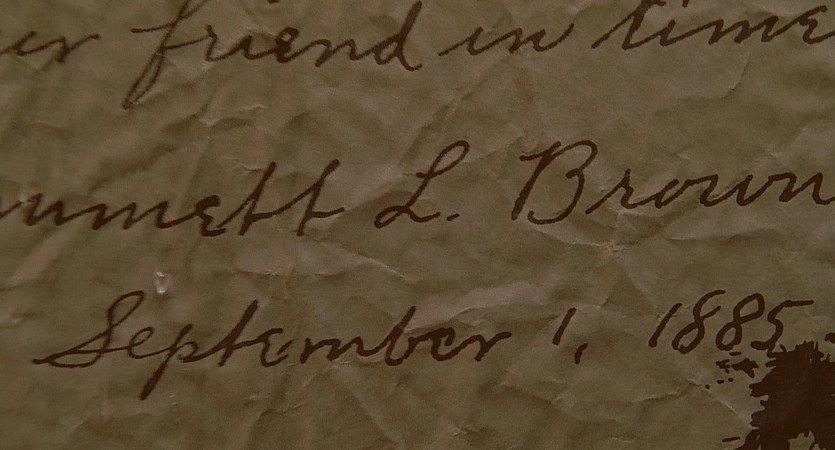 ur friend in time
mmett L. Brown
September 1, 1885